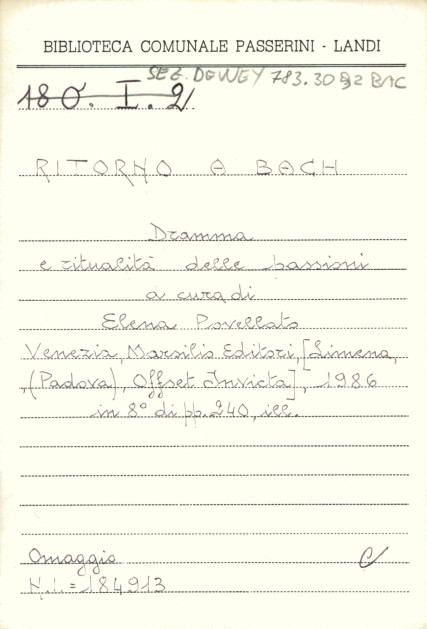 BIBLIOTECA COMUNALE PASSERINI - LANDI
SEZ. DEWEY 783.3092 BAC
180. I. 2
RITORNO A BACH
Dramma
e ritualità delle passioni
a cura di
Elena Povellato
Venezia, Marsilio Editori, [Limena,
(Padova), Offset Invicta], 1986
in 8° di pp. 240, ill.
Omaggio C/
N.I. = 184913